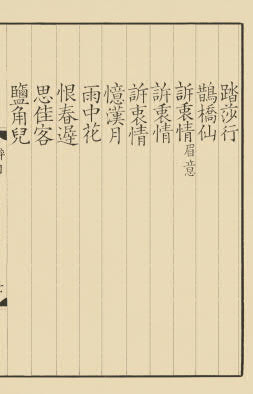 踏莎行
鵲橋仙
訴衷情眉意
訴衷情
訴衷情
憶漢月
雨中花
恨春遲
思佳客
鹽角兒